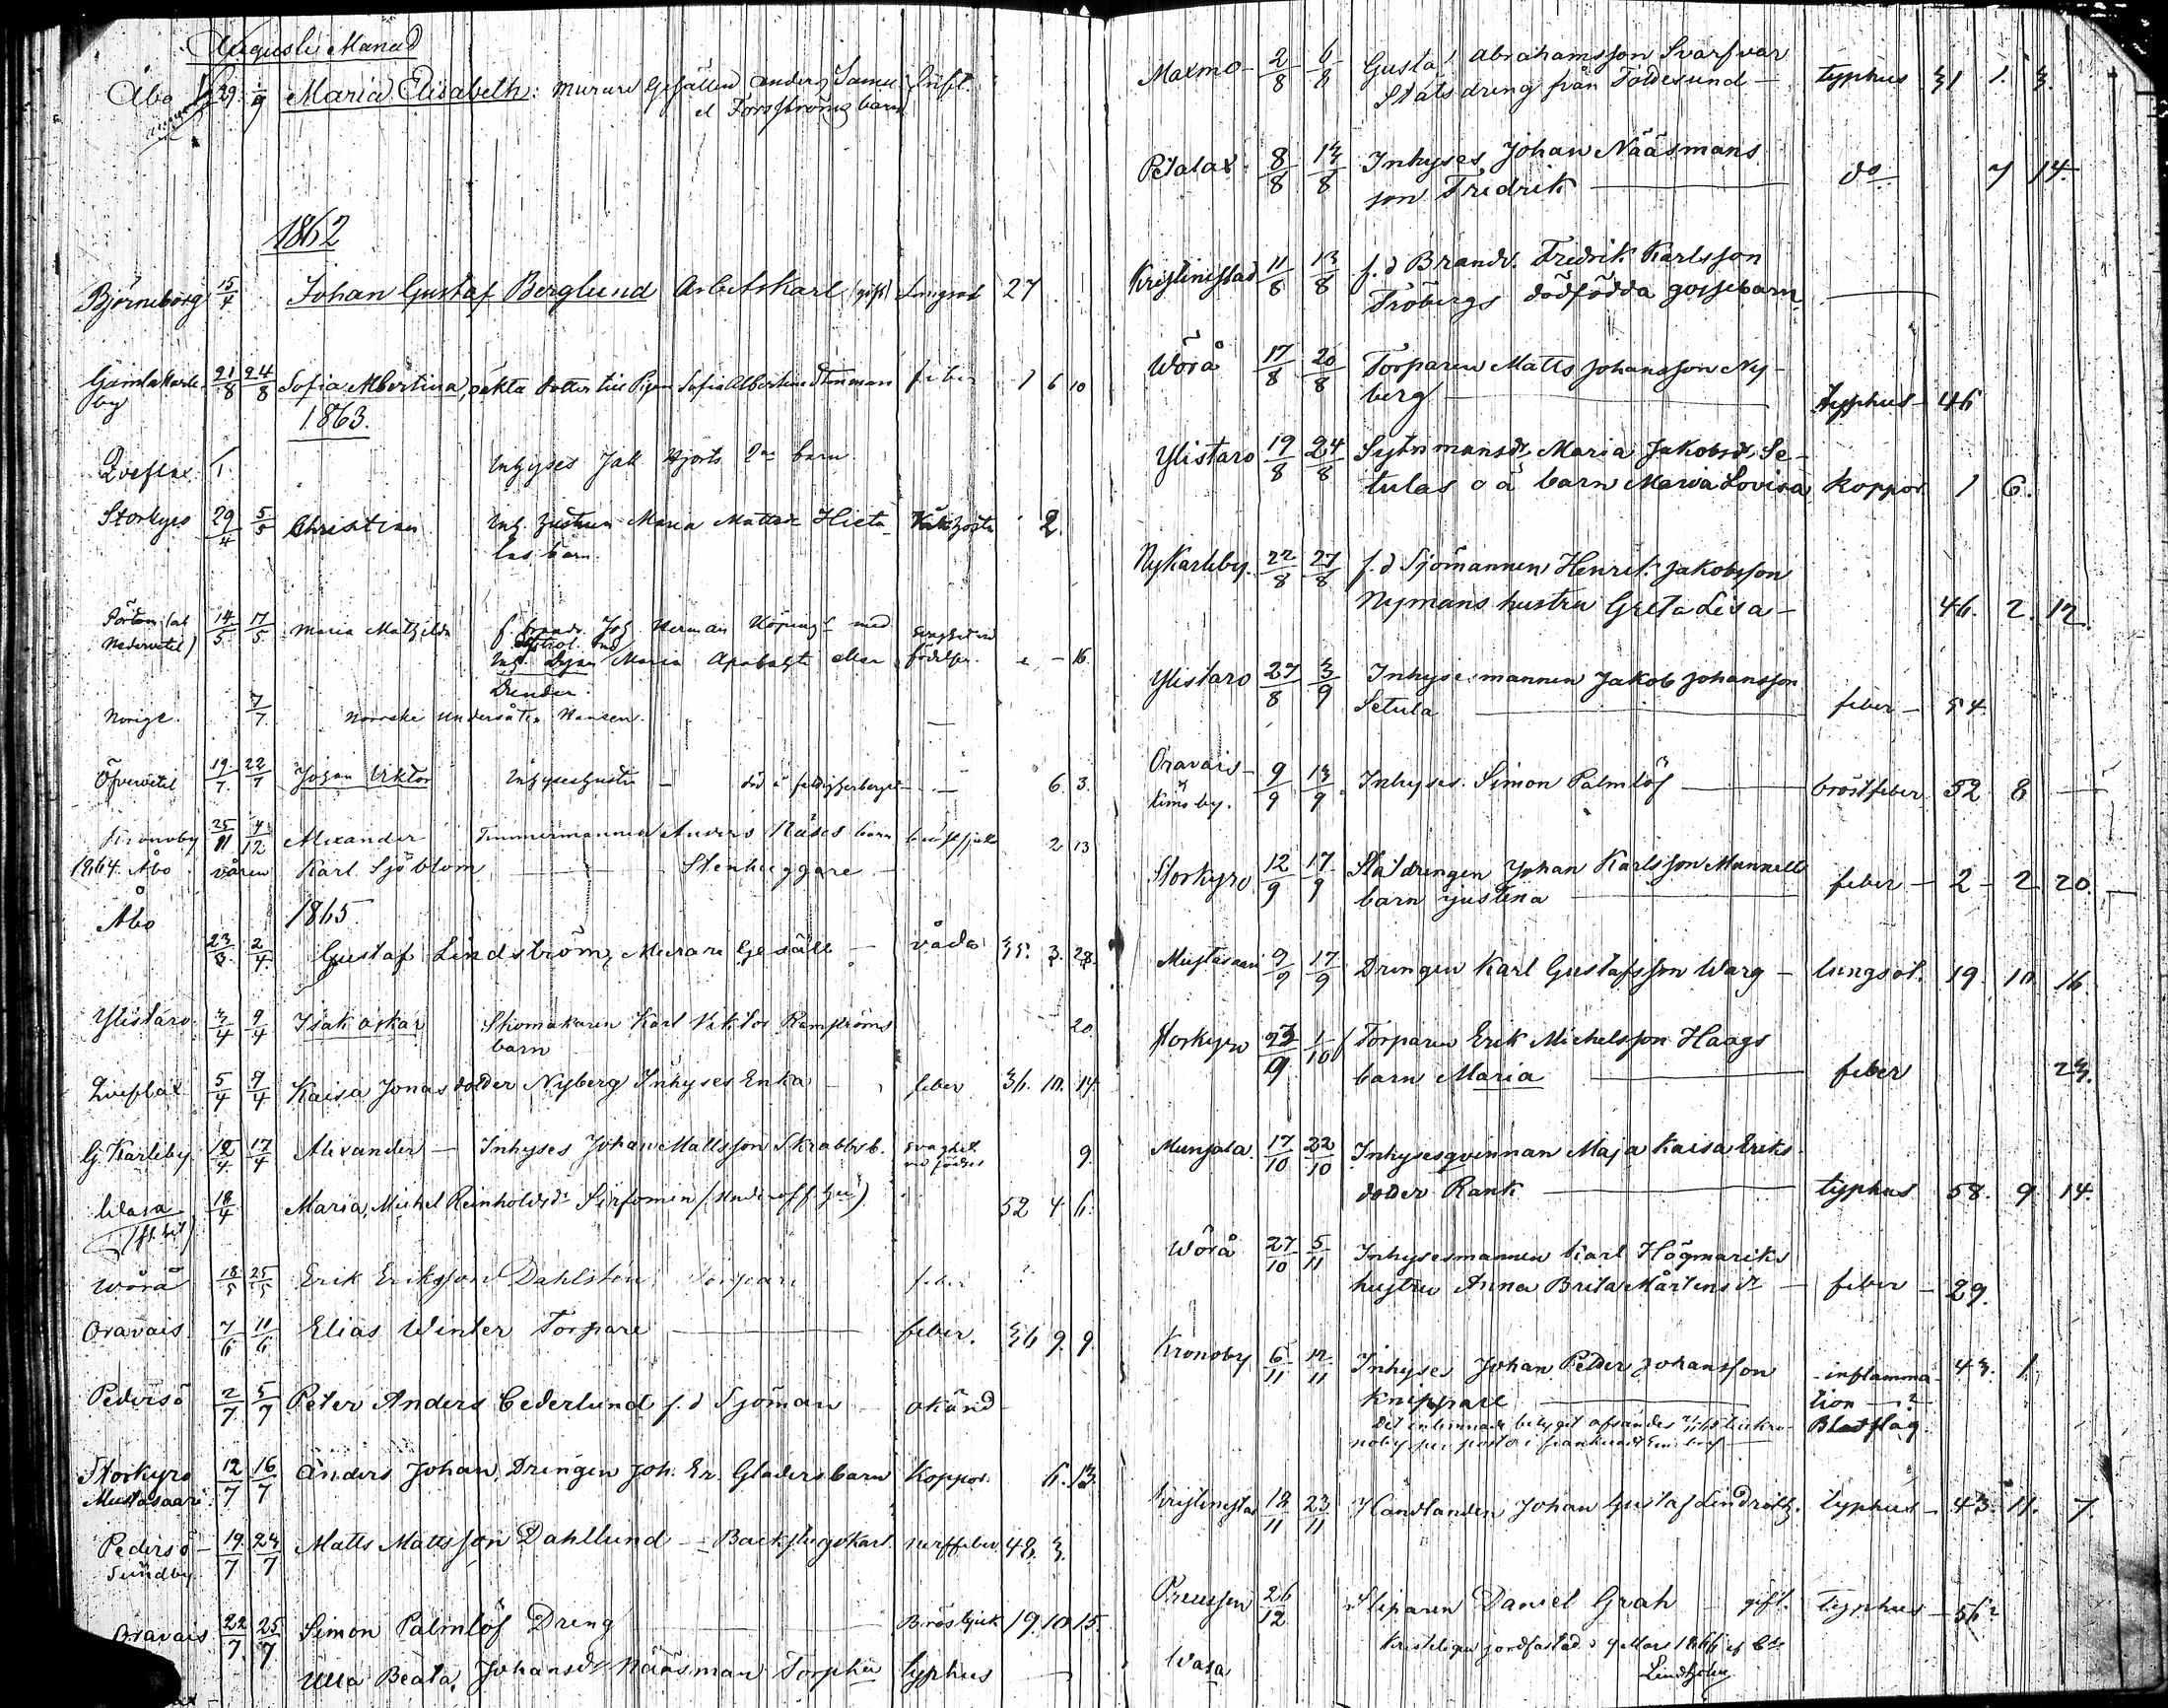 Augusti Månad
Åbo 29 1/9 Maria Elisabeth: Murare Gesällen Anders Samu-
el Forsströms barn
1862
Björneborg 15/4 Johan Gustaf Berglund Arbetskarl (gift) Lungsot 27
Gamla Karle- 21/8 24/8 Sofia Albertina, oäkta dotter till Pigan Sofia Albertina feber 1 6 10
by
1863.
Qveflax 1 Inhyses Jak Hjorts barn
Storkyro 29/4 5/5 Christian Inh. hustrun Maria Mattsdr Hieta- Kikhosta 2.
las barn
14/5 17/5 Maria Mathilda
Nedervetil) Maria födelsen. - - 16.
Norige 7/7 Norske undersåten Hansen. —
Öfvervetil 19/7 22/7 Johan Viktor Inhyseshustr — död å — 6. 3.
Kronoby 25/11 4/12 Alexander Timmermannen Anders Näses barn 2 13
1864 Åbo våren Karl Sjöblom Stenhuggare —
Åbo 1865.
23/3 2/4 Gustaf Lindström, Murare Gesäll — våda 35. 3. 28.
Ylistaro 3/4 9/4 Isak Oskar Skomakaren Karl Viktor Ramströms 20
barn
Qveflax 5/4 9/4 Kaisa Jonasdotter Nyberg Inhyses Enka — feber 36. 10. 14.
G. Karleby 12/4 17/4 Alexander — Inhyses Johan Mattsson Skrabbs b. svaghet 9.
vid födsel
Wasa 18/4 Maria, Michel Reinholdsdr 52 4 6.
Wörå 18/5 25/5 Erik Eriksson Dahlsten Torpare feber
Oravais 7/6 11/6 Elias Winter Torpare — feber. 36 9. 9.
Pedersö 2/7 5/7 Peter Anders Cederlund f. d Sjöman — okänd
Storkyro 12/7 16/7 Anders Johan, Drengen Joh. Er. Gladers barn Koppor. 6. 13.
Mustasaari
Pedersö — 19/7 23/7 Matts Mattsson Dahllund — Backstugukarl nerffeber 48. 3.
Sundby
Oravais 22/7 25/7 Simon Palmlöf Dreng — Bröstsjuk 19. 10. 15.
Ulla Beata, Johansdr Nääsman Torphu typhus
Maxmo — 2/8 6/8 Gustaf Abrahamsson Svarfvar typhus 31 1. 3.
Statsdreng från Tottesund —
Petalax 8/8 13/8 Inhyses Johan Nääsmans do 7 14.
son Fridrik —
Kristinestad 11/8 13/8 f. d Brandv. Fredrik Karlsson
Fröbergs dödfödda gossebarn —
Wörå 17/8 20/8 Torparen Matts Johansson Ny-
berg — typhus — 46
Ylistaro 19/8 24/8 Sytnmansdr Maria Jakobsdr Se-
tulas o ä barn Maria Lovisa Koppor 1 6.
NyKarleby. 22/8 27/8 f. d Sjömannen Henrik Jakobsson
Nymans hustru Greta Lisa — 46. 2. 12.
Ylistaro 27/8 3/9 Inhysemannen Jakob Johansson
Setula — feber — 54.
Oravais — 9/9 13/9 Inhyses. Simon Palmlöf — bröstfeber 52 8 —
Kimo by.
Storkyro 12/9 17/9 Statdrengen Johan Karlsson Mannells
barn Justina — feber — 2 — 2 20. —
Mustasaari 9/9 17/9 Drengen Karl Gustafsson Warg — lungsot. 19. 10. 16.
Storkyro 23/9 1/10 Torparen Erik Michelsson Haags
barn Maria — feber 23.
Munsala. 17/10 22/10 Inhysesqvinnan Maja Kaisa Eriks-
doter Rank — typhus 58. 9. 14.
Wörå 27/10 5/11 Inhysesmannen Karl Högmariks
hustru Anna Brita Mårtensdr — feber — 29.
Kronoby 6/11 12/11 Inhyses Johan Peter Johansson — inflamma- 43. 1.
Knippare — tion — ?
Det inlemnade betyget afsändes till Kro- Blodslag
noby per posto i frankeradt
Kristinestad 18/11 23/11 Handlanden Johan Gustaf Lindroth. typhus — 43. 11. 7.
Preussen 26/12 Sliparen Daniel Grah — gift. typhus — 56
Kristeligen jordfästad d 4 Mars 1866 af
Wasa Lindholm